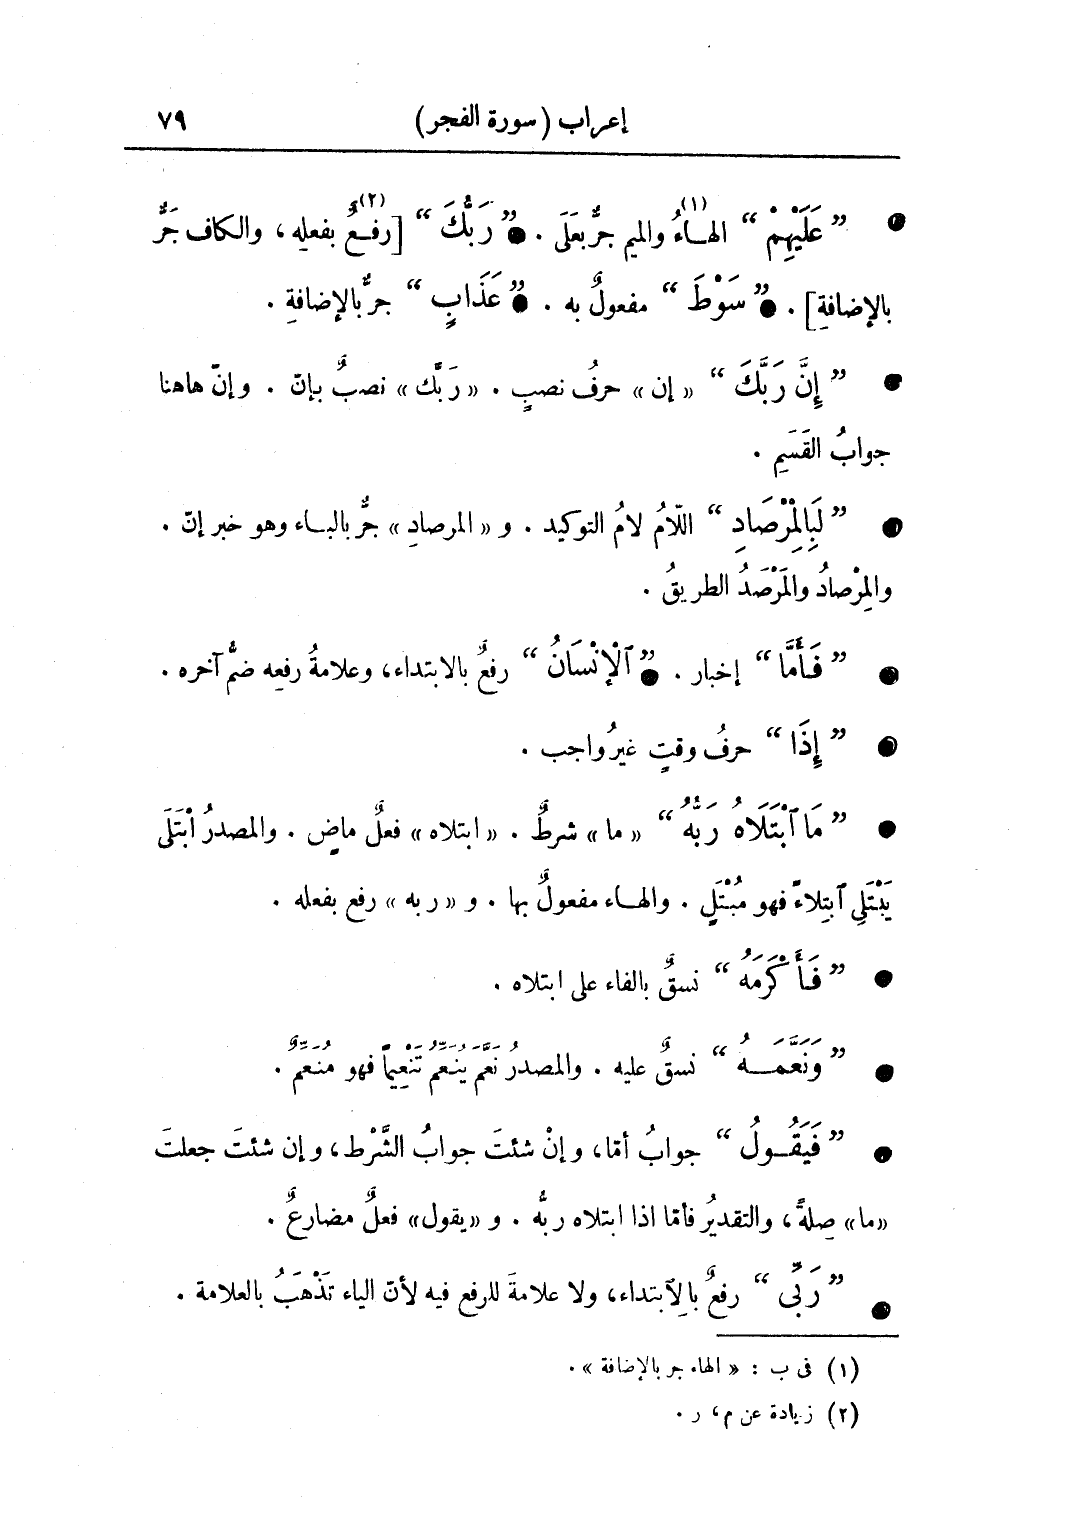 إعراب (سورة الفجر) ٧٩
● ” عَلَيْهِمْ “ الهـاءُ(١) والميم جرٌّ بعَلَى . ● ” رَبُّكَ “ [رفعٌ(٢) بفعلِهِ ، والكاف جَرٌّ
بالإضافةِ] . ● ” سَوْطَ “ مفعولٌ به . ● ” عَذَابٍ “ جرٌّ بالإضافةِ .
● ” إِنَّ رَبَّكَ “ « إن » حرفُ نصبٍ . « رَبَّك » نصبٌ بإنّ . وإنّ هاهنا
جوابُ القَسَمِ .
● ” لَبِالْمِرْصَادِ “ اللّامُ لامُ التوكيد . و « المرصادِ » جرٌّ بالبـاء وهو خبر إنّ .
والمِرْصادُ والمَرْصَدُ الطريقُ .
● ” فَأَمَّا “ إخبار . ● ” ٱلْإِنْسَانُ “ رفعٌ بالابتداء، وعلامةُ رفعِه ضمُّ آخره .
● ” إِذَا “ حرفُ وقتٍ غيرُ واجب .
● ” مَا ٱبْتَلَاهُ رَبُّهُ “ « ما » شرطٌ . « ابتلاه » فعلٌ ماضٍ . والمصدرُ ٱبْتَلَى
يَبْتَلِي ٱبتِلاءً فهو مُبْتَلٍ . والهـاء مفعولٌ بها . و « ربه » رفع بفعله .
● ” فَأَكْرَمَهُ “ نسقٌ بالفاء على ابتلاه .
● ” وَنَعَّمَـهُ “ نسقٌ عليه . والمصدرُ نَعَّمَ يُنَعِّمُ تَنْعِيمًا فهو مُنَعِّمٌ .
● ” فَيَقُـولُ “ جوابُ أمّا، وإنْ شئتَ جوابُ الشَّرْط، وإن شئتَ جعلتَ
«ما» صِلةً، والتقديرُ فأمّا اذا ابتلاه ربُّه . و «يقول» فعلٌ مضارعٌ .
● ” رَبِّى “ رفعٌ بالِٱبتداء، ولا علامةَ للرفع فيه لأنّ الياء تَذْهَبُ بالعلامة .
(١) فى ب : « الهاء جر بالإضافة ».
(٢) زيادة عن م، ر .